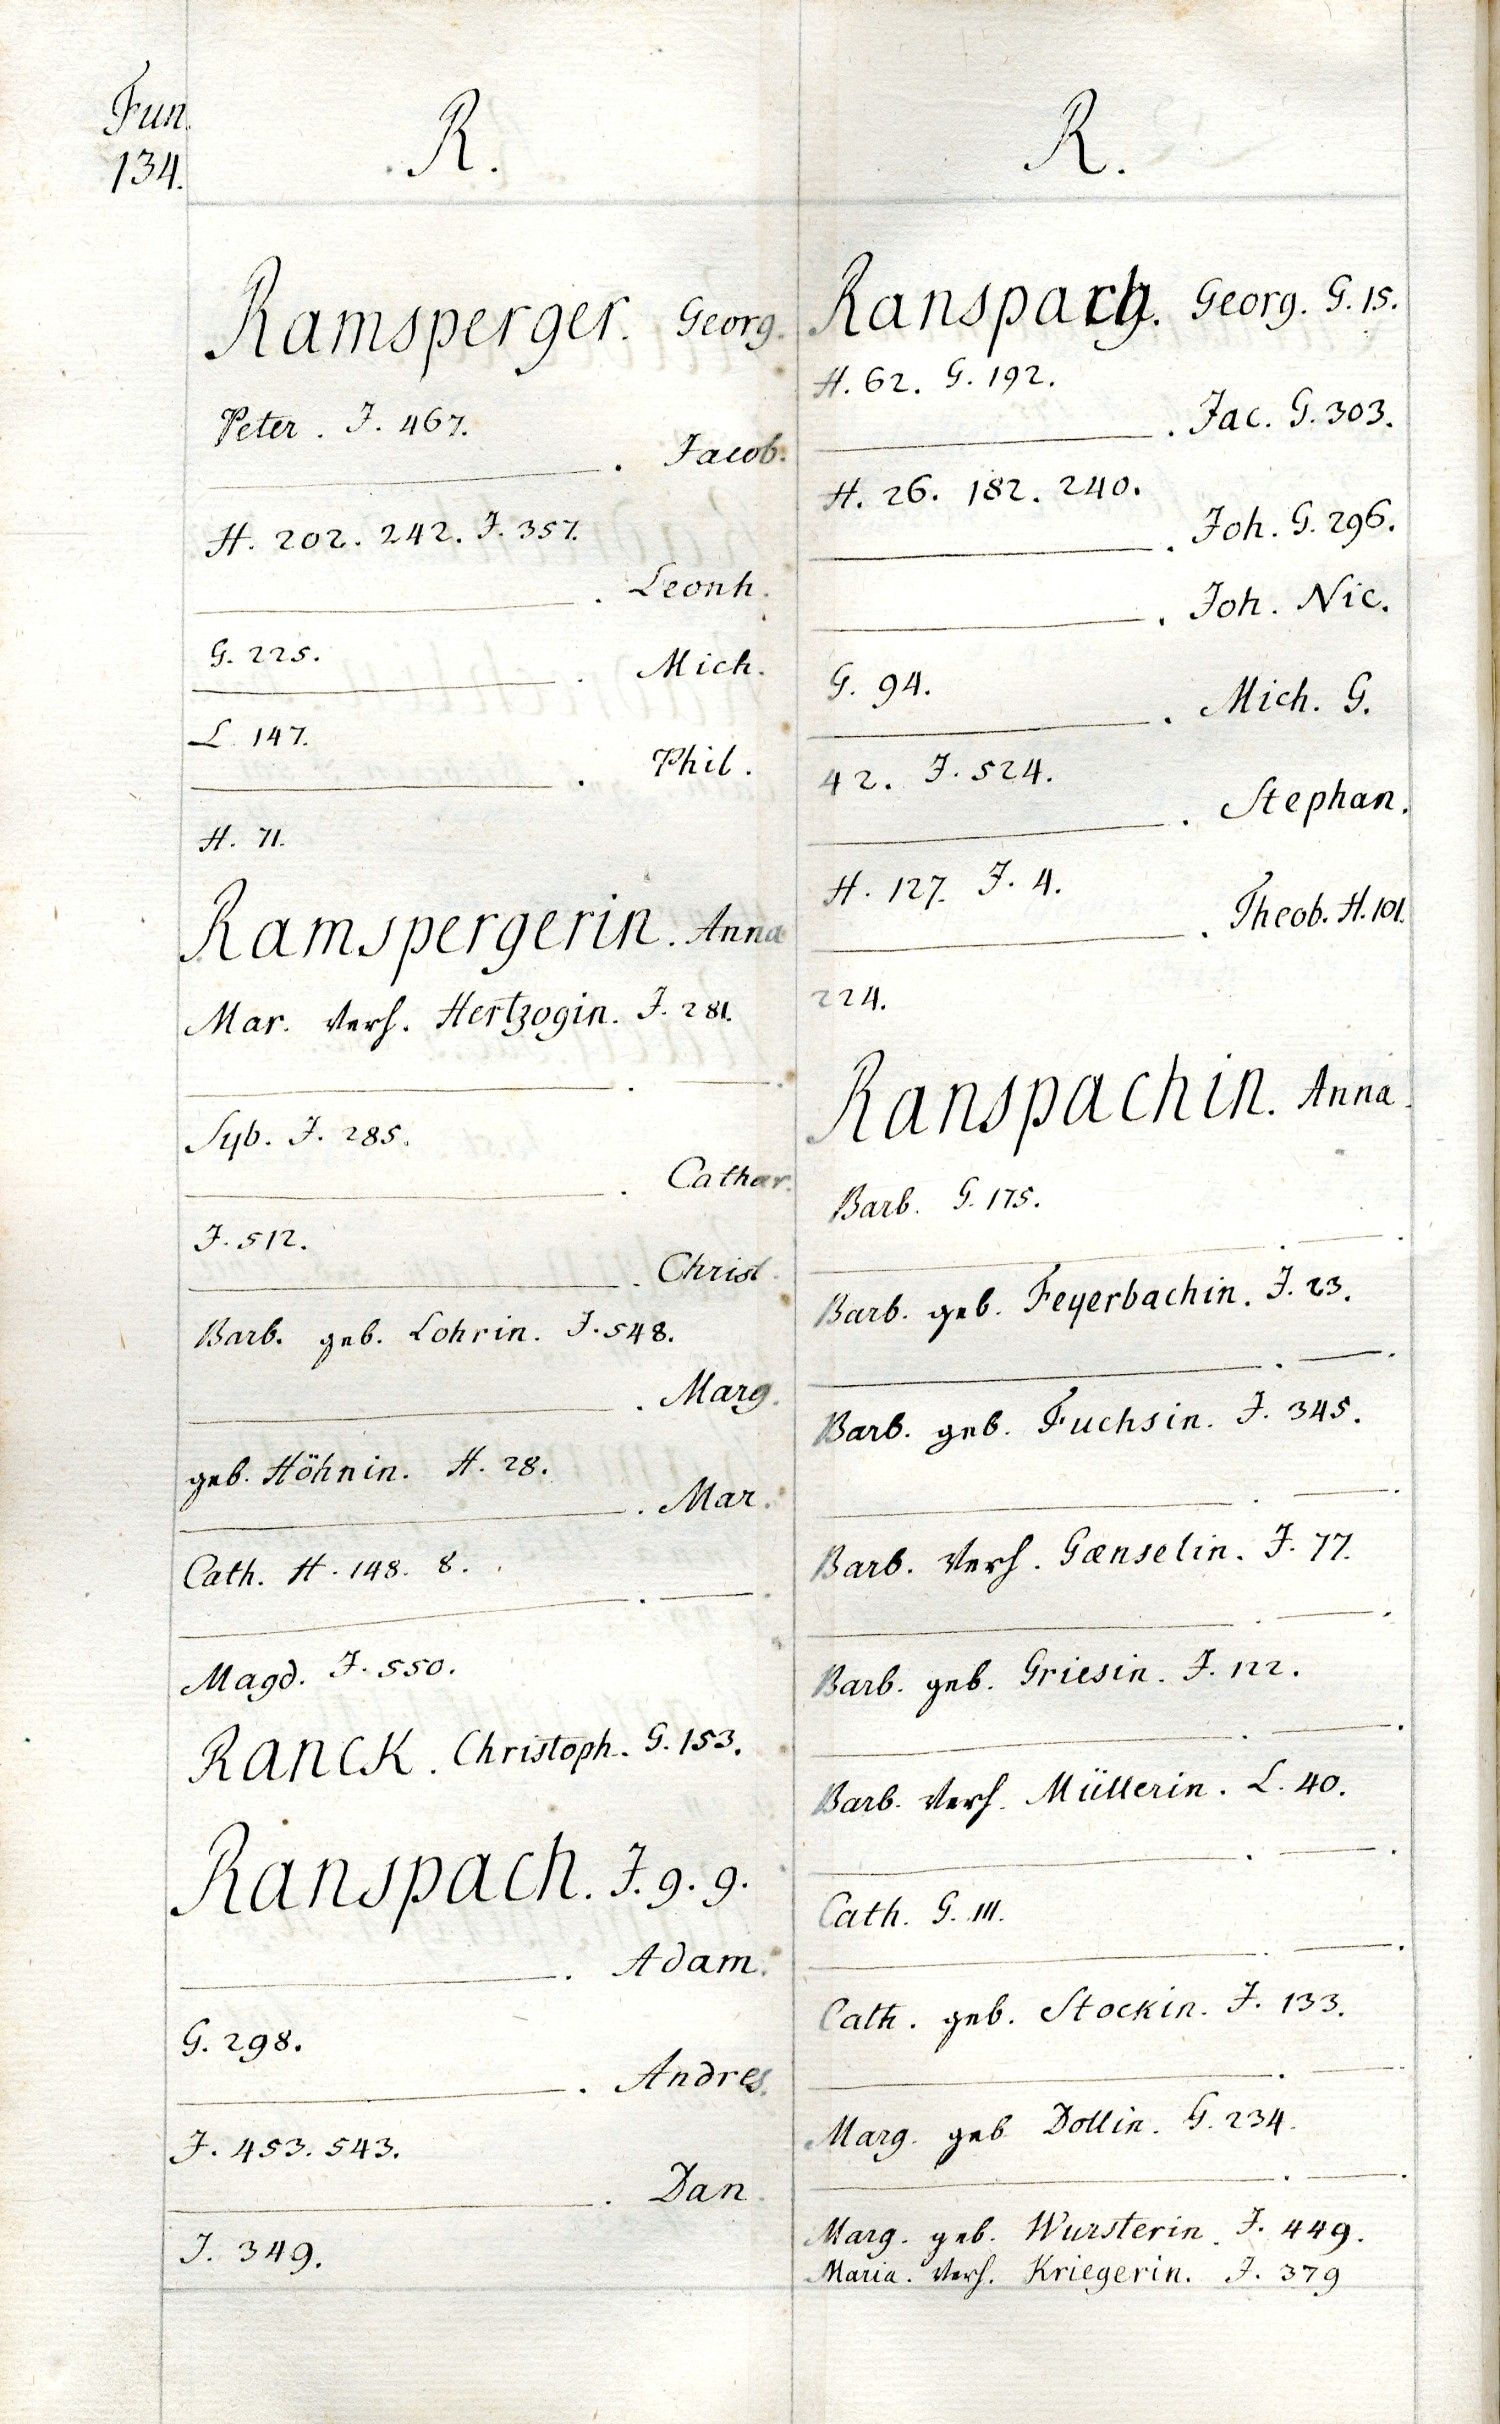 Fun.
134.
R.
Ramsperger. Georg.
Peter. J. 467.
. Jacob.
H. 202. 242. J. 357.
. Leonh.
G. 225.
. Mich.
L. 147.
. Phil.
H. 71.
Ramspergerin. Anna
Mar. verh. Hertzogin. J. 281.
Syb. J. 285.
. Cathar.
J. 512.
. Christ.
Barb. geb. Lohrin. J. 548.
. Marg.
geb. Höhnin. H. 28.
. Mar.
Cath. H. 148. 8.
Magd. J. 550.
Ranck. Christoph. G. 153.
Ranspach. J. 9. 9.
. Adam.
G. 298.
. Andres.
J. 453. 543.
. Dan.
J. 349.
R.
Georg. G. 15.
H. 62. G. 192.
. Jac. G. 303.
H. 26. 182. 240.
. Joh. G. 296.
. Joh. Nic.
G. 94.
. Mich. G.
42. J. 524.
. Stephan.
H. 127. J. 4.
. Theob. H. 101.
224.
Ranspachin. Anna.
Barb. G. 175.
Barb. geb. Feyerbachin. J. 23.
Barb. geb. Fuchsin. J. 345.
Barb. verh. Gænselin. J. 77.
Barb. geb. Griesin. J. 122.
Barb. verh. Müllerin. L. 40.
Cath. G. 111.
Cath. geb. Stockin. J. 133.
Marg. geb. Dollin. G. 234.
Marg. geb. Wursterin. J. 449.
Maria. verh. Kriegerin. J. 379